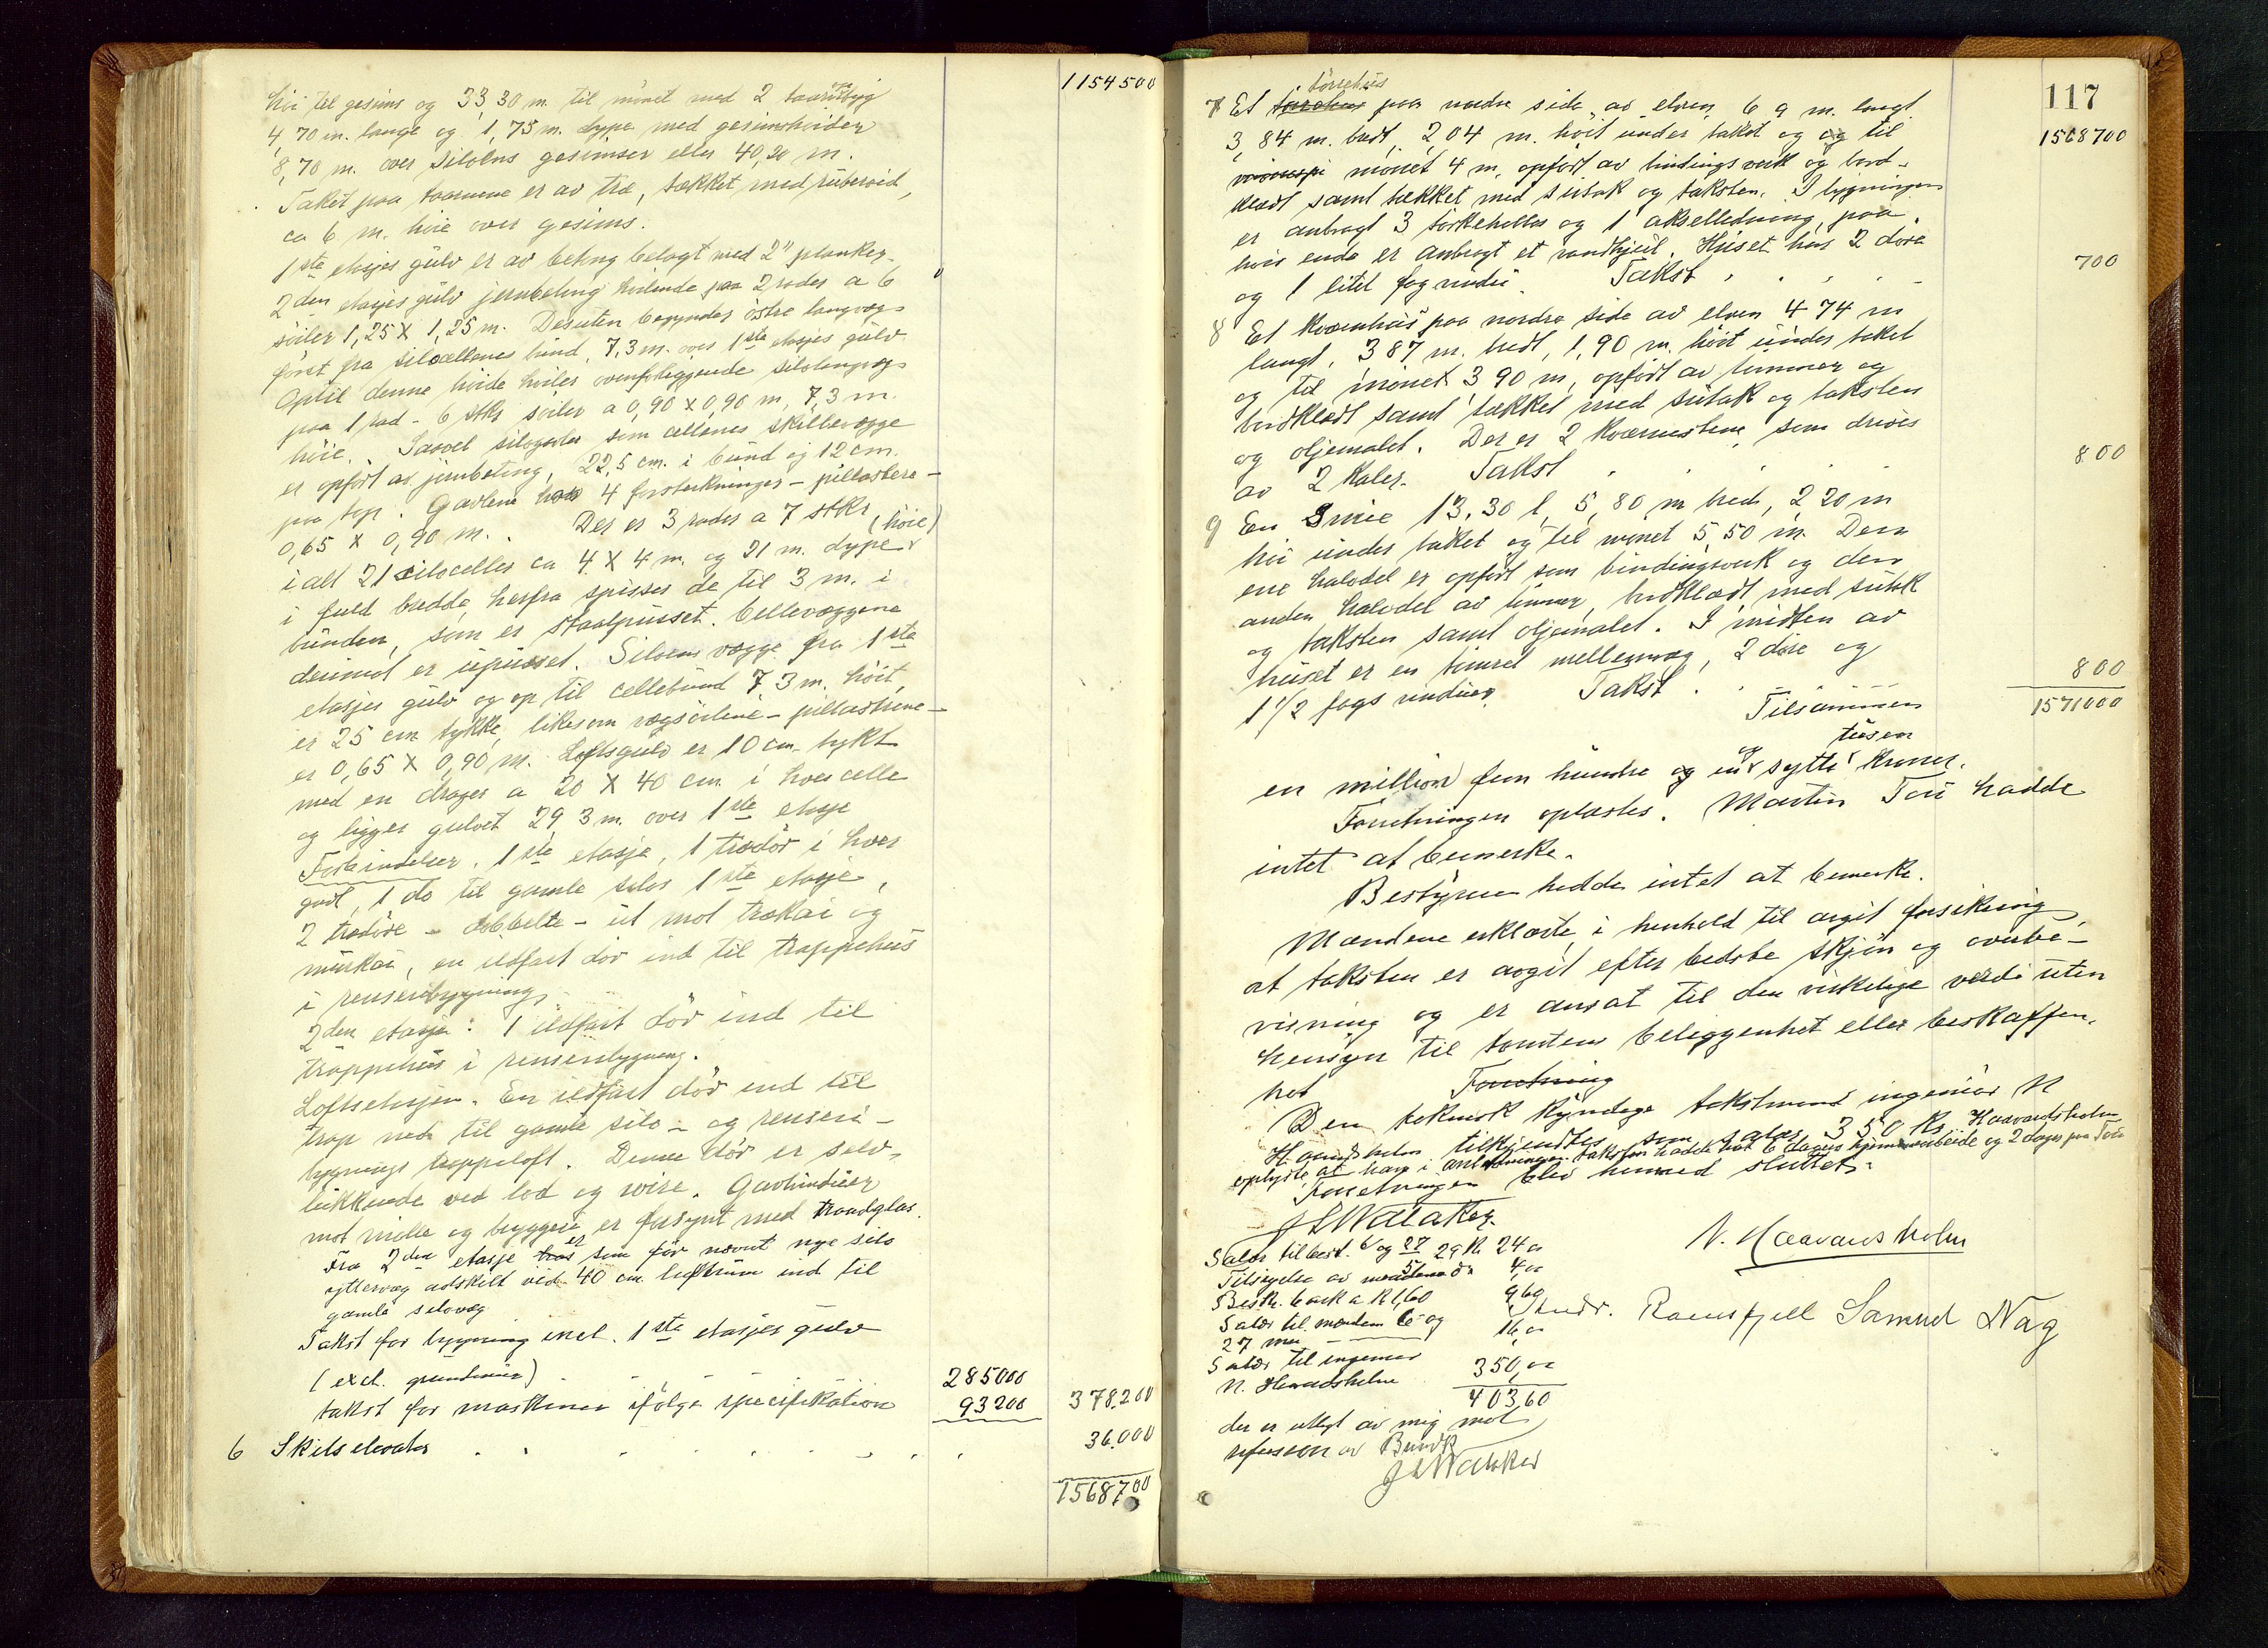 1154500
høi til gesims og 33,30 m. til mønet med 2 taarnbyg
4,70 m. lange og 1,75 m. dype med gesimshøider
8,70 m. over siloens gesimser eller 40,20 m.
Taket paa taarnene er av træ, tækket med ruberoid,
ca 6 m. høie over gesims.
1ste etasjes gulv er av betong belagt med 2" planker.
2den etasjes gulv jernbetong hvilende paa 2 rader a 6
søiler 1,25 X 1,25 m. Desuten begynder østre langvæg
først fra silocellenes bund, 7,3 m. over 1ste etasjes gulv.
Optil denne høide hviler ovenforliggjende silolangvæg
paa 1 rad - 6 stks søiler a 0,90 x 0,90 m, 7,3 m.
høie. Saavel silogavler som cellenes skillevægge
er opført av jernbetong, 22,5 cm. i bund og 12 cm.
paa top. Gavlene har 4 forsterkninger - pillastere -
0,65 X 0,90 m. Der er 3 rader a 7 stks
i alt 21 siloceller ca 4 X 4 m. og 21 m. dype (høie)
i fuld bredde, herfra spisses de til 3 m. i
bunden, som er staalpusset. Cellevæggene
derimot er upusset. Siloens vægge fra 1ste
etasjes gulv og op til cellebund 7,3 m. høit,
er 25 cm tykke, likesom vægsøilene - pillastrene -
er 0,65 X 0,90 m. Loftsgulv er 10 cm. tykt
med en drager a 20 X 40 cm. i hver celle
og ligger gulvet 29,3 m. over 1ste etasje
Forbindelser. 1ste etasje, 1 trædør i hver
gavl, 1 do til gamle silos 1ste etasje,
2 trædøre - dobbelte - ut mot trækai og
murkai, en ildfast dør ind til trappehus
i renseribygning.
2den etasje: 1 ildfast dør ind til
trappehus i renseribygning.
Loftsetasjen. En ildfast dør ind til
trap ned til gamle silo - og renseri-
bygnings trappeloft. Denne dør er selv-
lukkende ved lod og wire. Gavlvinduer
mot mølle og bryggeri er forsynt med traadglas.
Fra 2den etasje har er som før nævnt nye silo
yttervæg adskilt ved 40 cm. luftrum ind til
gamle silovæg
Takst for bygning incl. 1ste etasjes gulv
(excl. grundmur) . 285000
takst for maskiner ifølge specifikation 93200 378.200
6 Skibselevator . . . . . . . . 36.000
1568700
117
1568700
tørrehus
7 Et tørrehus paa nordre side av elven 6,9 m. langt
3,84 m. bredt, 2,04 m. høit under taket og og til
mønet 4 m, opført av bindingsverk og bord-
klædt samt tækket med sutak og taksten. I bygningen
er anbragt 3 tørkeheller og 1 akselledning, paa
hvis ende er anbragt et vandhjul. Huset har 2 døre
og 1 litet fag vindu. Takst . . . . 700
8 Et kværnhus paa nordre side av elven 4,74 m
langt, 3,87 m. bredt, 1,90 m. høit under taket
og til mønet 3,90 m, opført av tømmer og
bordklædt samt tækket med sutak og taksten
og oljemalet. Der er 2 kværnstene, som drives
av 2 kaler. Takst . . . . 800
9 En Smie 13,30 l, 5,80 m bred, 2,20 m
høi under taket og til mønet 5,50 m. Den
ene halvdel er opført som bindingsverk og den
anden halvdel av tømmer, bordklædt med sutak
og taksten samt oljemalet. I midten av
huset er en tømret mellemvæg, 2 døre og
1 1/2 fags vinduer. Takst . . . . 800
Tilsammen 1571000
tusen
en million fem hundre og en og sytti kroner.
Forretningen oplæstes. Martin Tou hadde
intet at bemerke.
Bestyreren hadde intet at bemerke.
Mændene erklærte i henhold til avgit forsikring
at taksten er avgit efter bedste skjøn og overbe-
visning og er ansat til den virkelige værdi uten
hensyn til tomtens beliggenhet eller beskaffen-
het Forretning
Den teknisk kyndige takstmand ingeniør N
Haavardsholm tilkjendtes som salær 350 kr. Haavardsholm
oplyste at han i anledningen taksten hadde hat 6 dagers hjemmearbeide og 2 dager paa Tou
Forretningen blev hermed sluttet.
J L Walaker
N. Haavardsholm
Andr. Ramsfjell Samuel Nag
Salær til best. 6 og 27 29 Kr 24,00
Tilsigelse av mændene 4,00
Beskr. 6 ark a K 1,60 9,60
Salær til mændene 6 og
27 mai 16,00
Salær til ingeniør
N. Haavardsholm 350,00
403,60
der er utlagt av mig mot
refusion av Brandk
J L Walaker